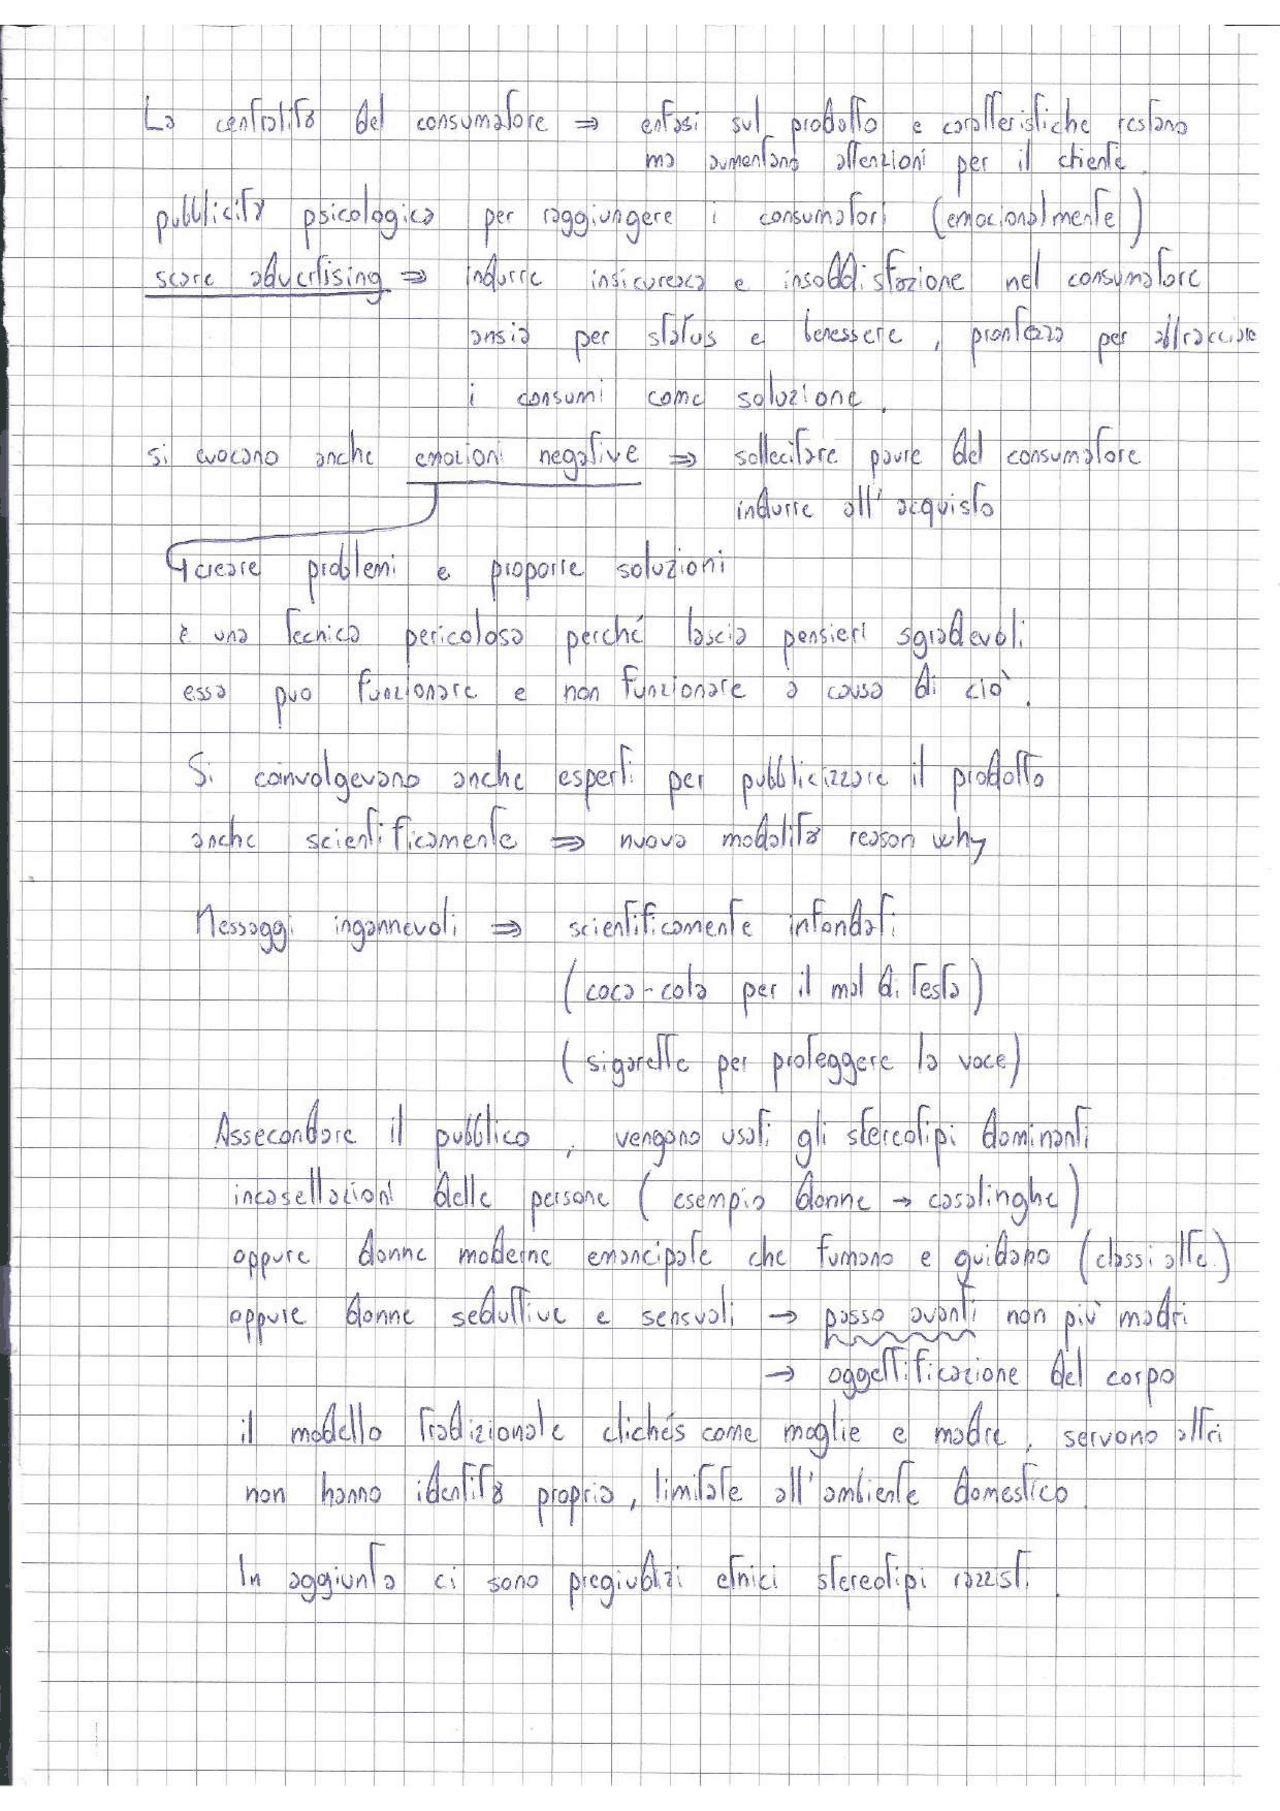 La centralità del consumatore ⇒ enfasi sul prodotto e caratteristiche restano
ma aumentano attenzioni per il cliente.
pubblicità psicologica per raggiungere i consumatori (emocionalmente)
scare advertising ⇒ indurre insicurezza e insoddisfazione nel consumatore
ansia per status e benessere, prontezza per abbracciare
i consumi come soluzione.
si evocano anche emozioni negative ⇒ sollecitare paure del consumatore
indurre all'acquisto
creare problemi e proporre soluzioni
è una tecnica pericolosa perché lascia pensieri sgradevoli
essa può funzionare e non funzionare a causa di ciò.
Si coinvolgevano anche esperti per pubblicizzare il prodotto
anche scientificamente ⇒ nuova modalità reason why
Messaggi ingannevoli ⇒ scientificamente infondati
(coca-cola per il mal di testa)
(sigarette per proteggere la voce)
Assecondare il pubblico, vengono usati gli stereotipi dominanti
incasellazioni delle persone (esempio donne → casalinghe)
oppure donne moderne emancipate che fumano e guidano (classi alte)
oppure donne seduttive e sensuali → passo avanti non più madri
→ oggettificazione del corpo
il modello tradizionale clichés come moglie e madre, servono altri
non hanno identità propria, limitate all'ambiente domestico.
In aggiunta ci sono pregiudizi etnici stereotipi razzisti.